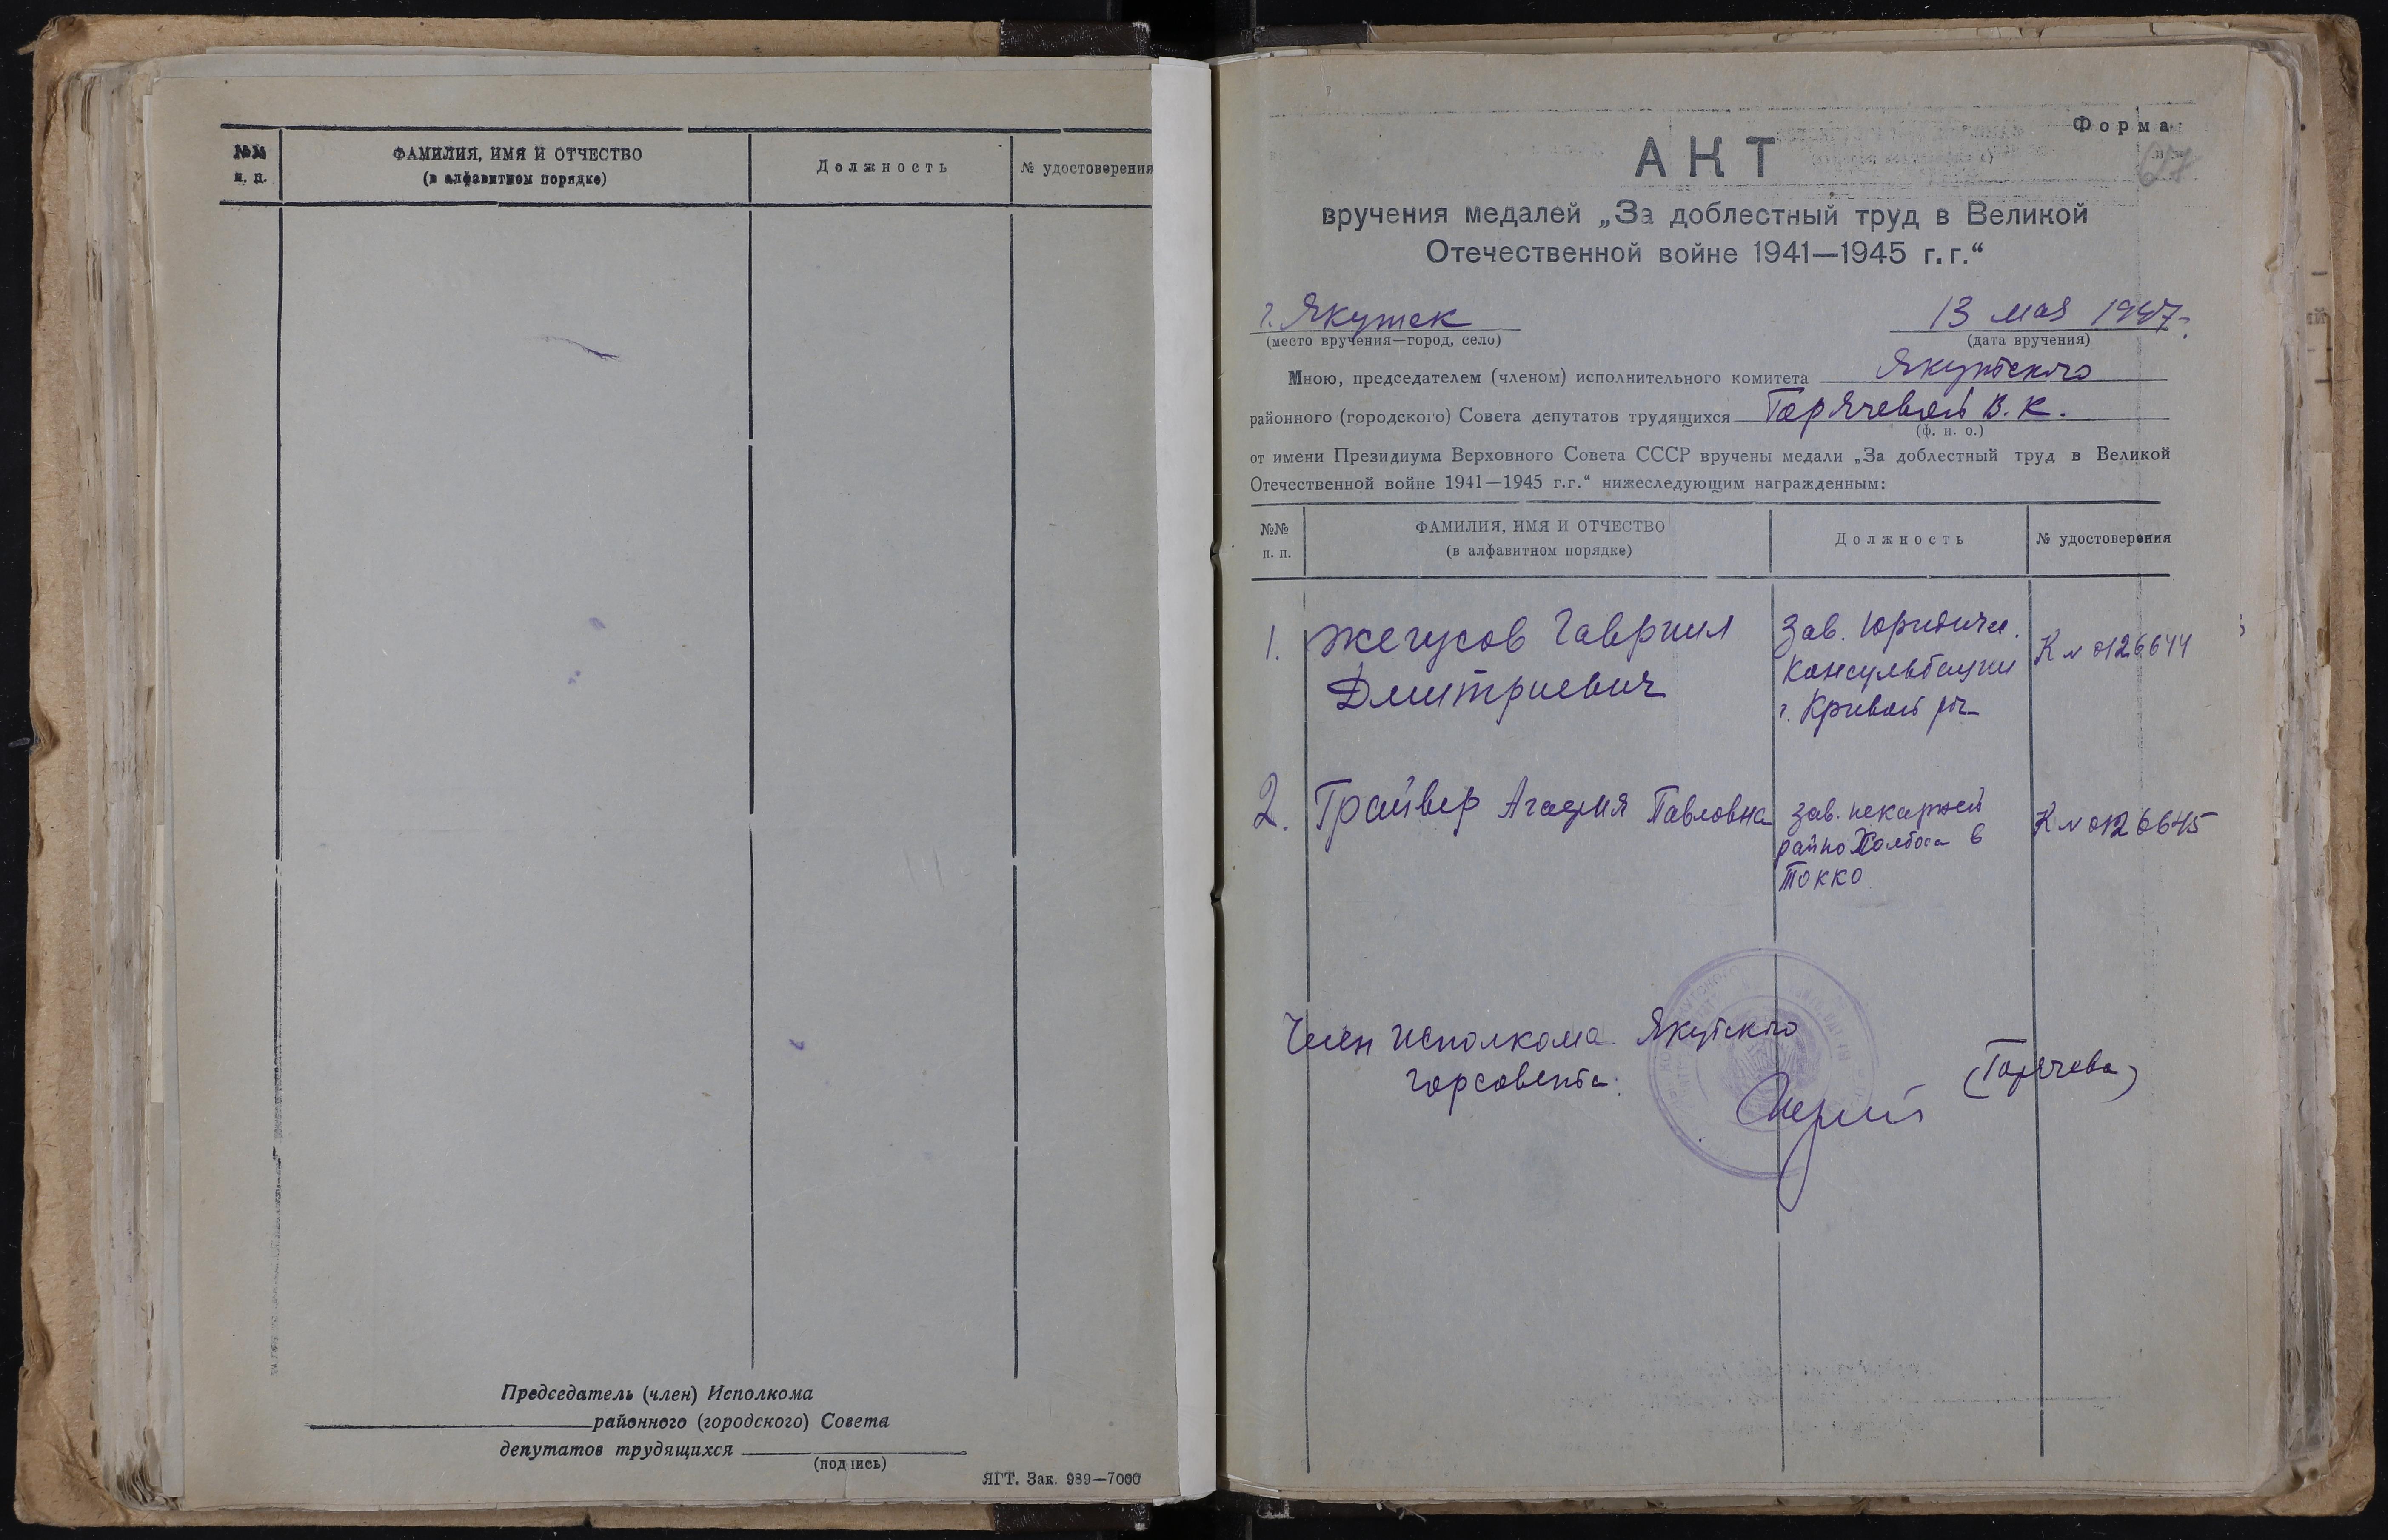 №№
п. п.
ФАМИЛИЯ, ИМЯ И ОТЧЕСТВО
(в алфавитном порядке)
Должность
№ удостоверения
Председатель (член) Исполкома
районного (городского) Совета
депутатов трудящихся
(подпись)
ЯГТ. Зак. 989—7000
Форма
67
АКТ
вручения медалей „За доблестный труд в Великой
Отечественной войне 1941—1945 г.г.“
г. Якутск
13 мая 1947 г.
(место вручения—город, село)
(дата вручения)
Мною, председателем (членом) исполнительного комитета Якутского
районного (городского) Совета депутатов трудящихся Горячевой В. К.
(ф. и. о.)
от имени Президиума Верховного Совета СССР вручены медали „За доблестный труд в Великой
Отечественной войне 1941—1945 г.г.“ нижеследующим награжденным:
№№
п. п.
ФАМИЛИЯ, ИМЯ И ОТЧЕСТВО
(в алфавитном порядке)
Должность
№ удостоверения
1. Жегусов Гавриил
Дмитриевич
Зав. Юридичи.
Консультации
г. Кривой рог
К № 0126644
2. Грайвер Агафия Павловна
зав. пекарней
райпо Холбоса в
Токко
К № 0126645
Член исполкома Якутского
горсовета.
(Горячева)